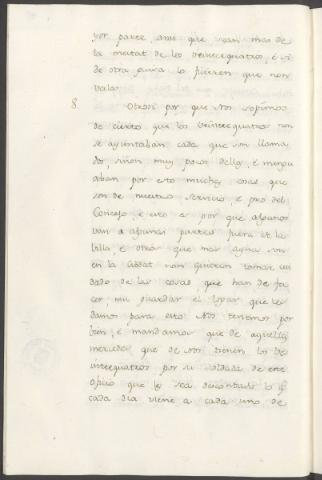 yor parte, assi que sean mas de
la meitat de los veintequatros, è si
de otra guisa lo fizieren que non
vala.
8. Otrosi por que Nos sopimos
de cierto que los veintequatros non
se ayuntaban cada que son llama
dos, sinon muy pocos dellos, è mengu
aban por esto muchas cosas que
son de nuestro servicio, è pro del
Concejo, è esto es por que algunos
van a algunas partes fuera de la
Villa, è otros que mas agina son
en la Cibdat non quieren tomar cui
dado de las cosas, que han de fa
cer, ni guardar el logar que les
damos para esto. Nos tenemos por
bien, è mandamos que de aquella
merced que de Nos tienen los ve
intequatros por su soldada de este
oficio que les sea descontado lo q
cada dia viene a cada uno de